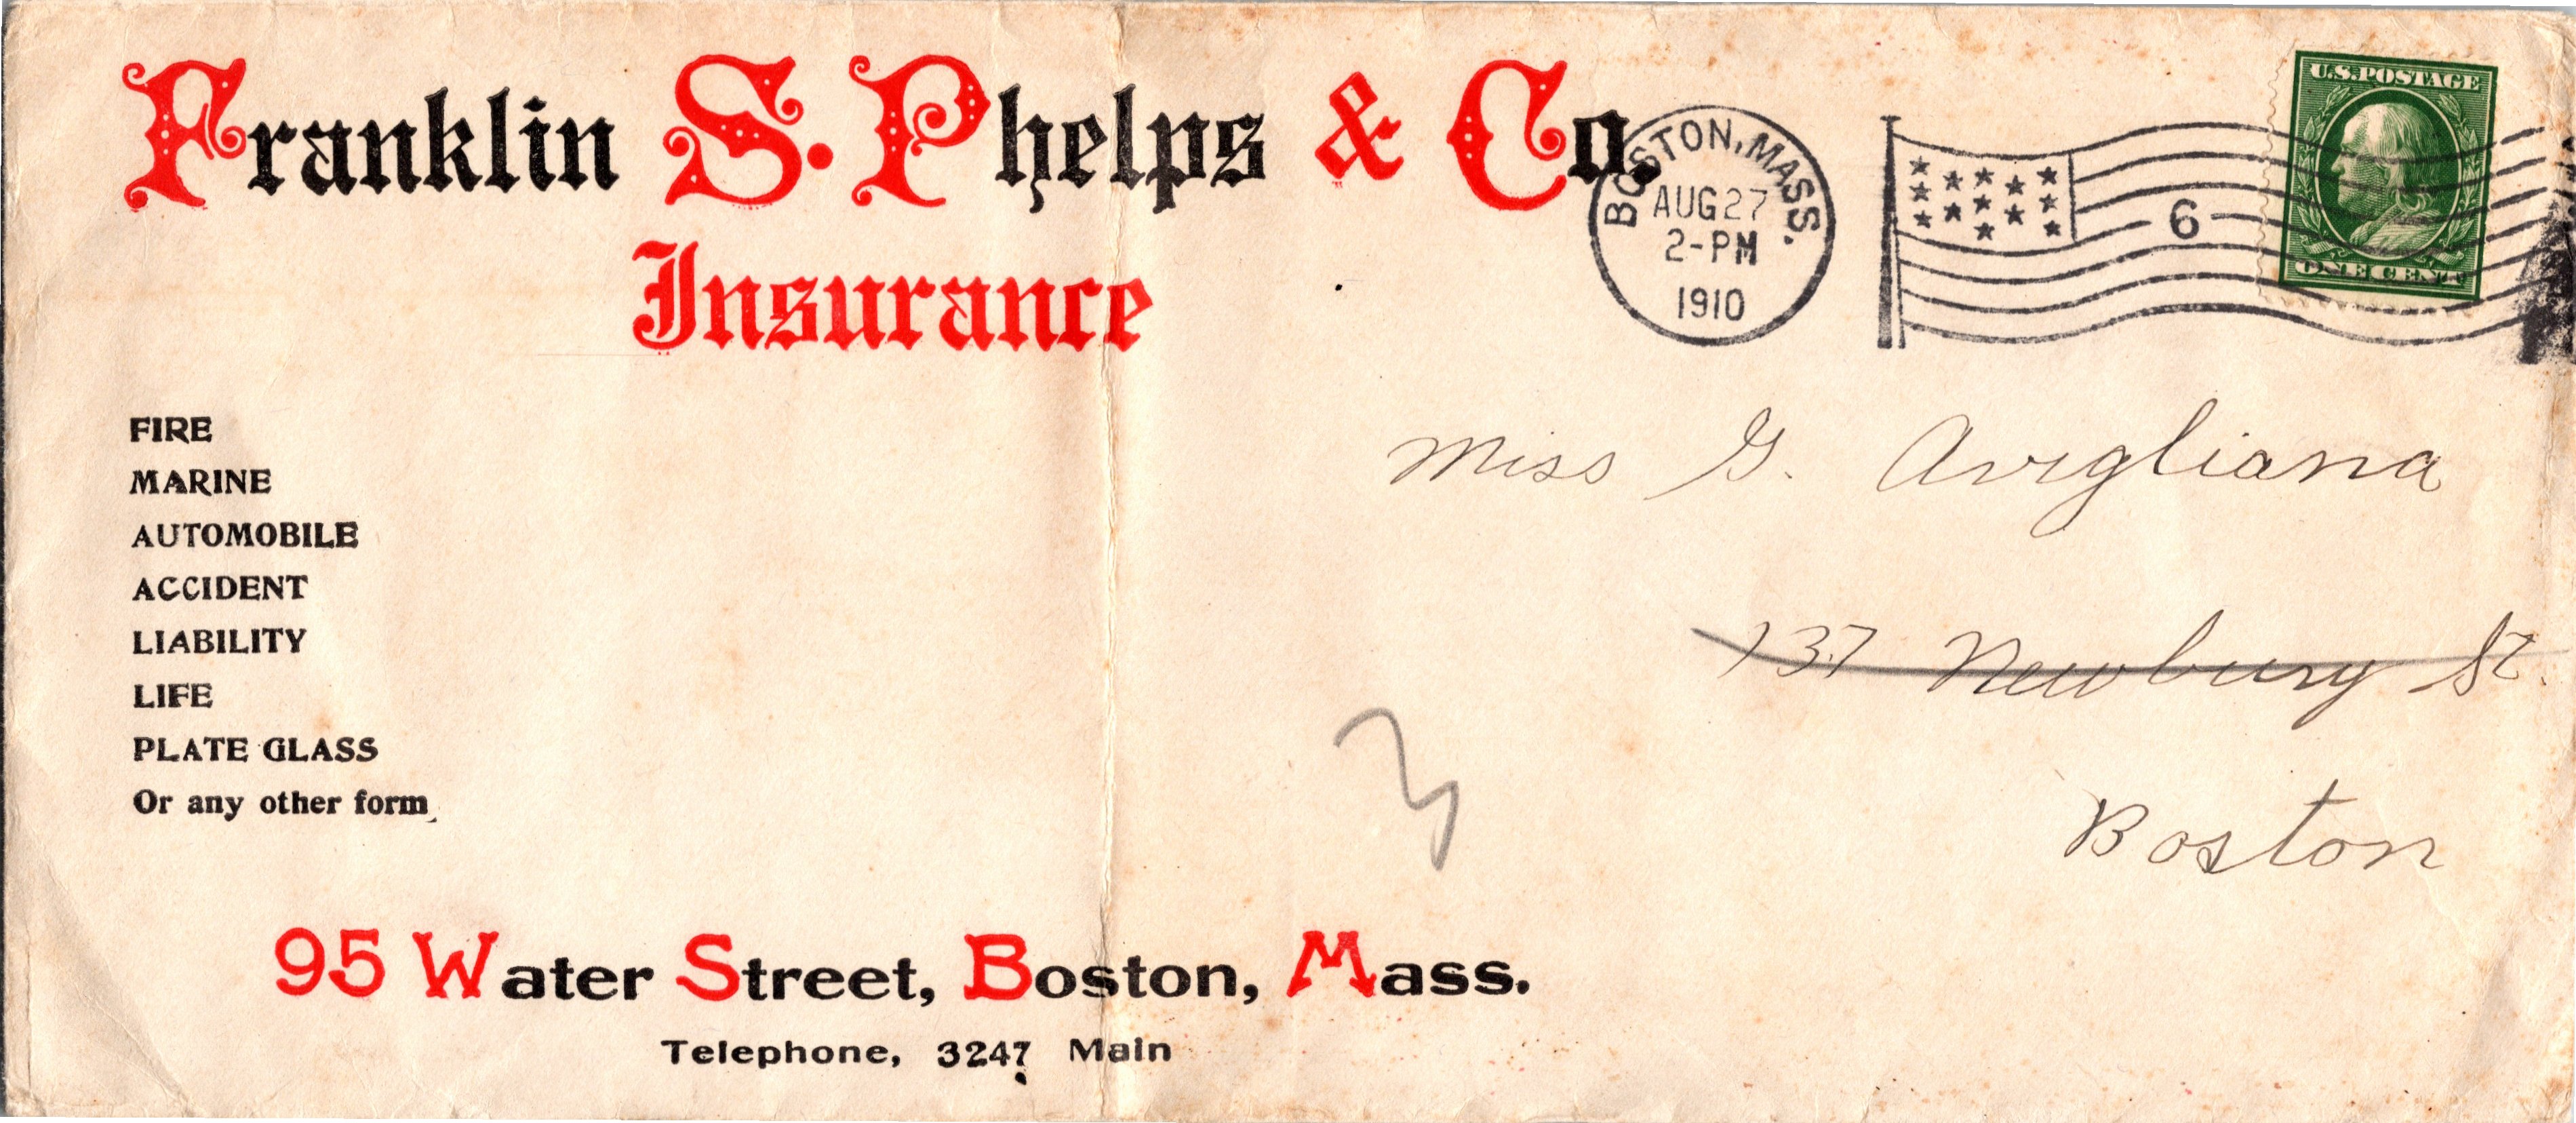 Franklin S. Phelps & Co.
Insurance
BOSTON, MASS.
AUG 27
2-PM
1910
6
U.S. POSTAGE
ONE CENT
FIRE
MARINE
AUTOMOBILE
ACCIDENT
LIABILITY
LIFE
PLATE GLASS
Or any other form
Miss G. Avigliana
137 Newbury St.
Boston
95 Water Street, Boston, Mass.
Telephone, 3247 Main